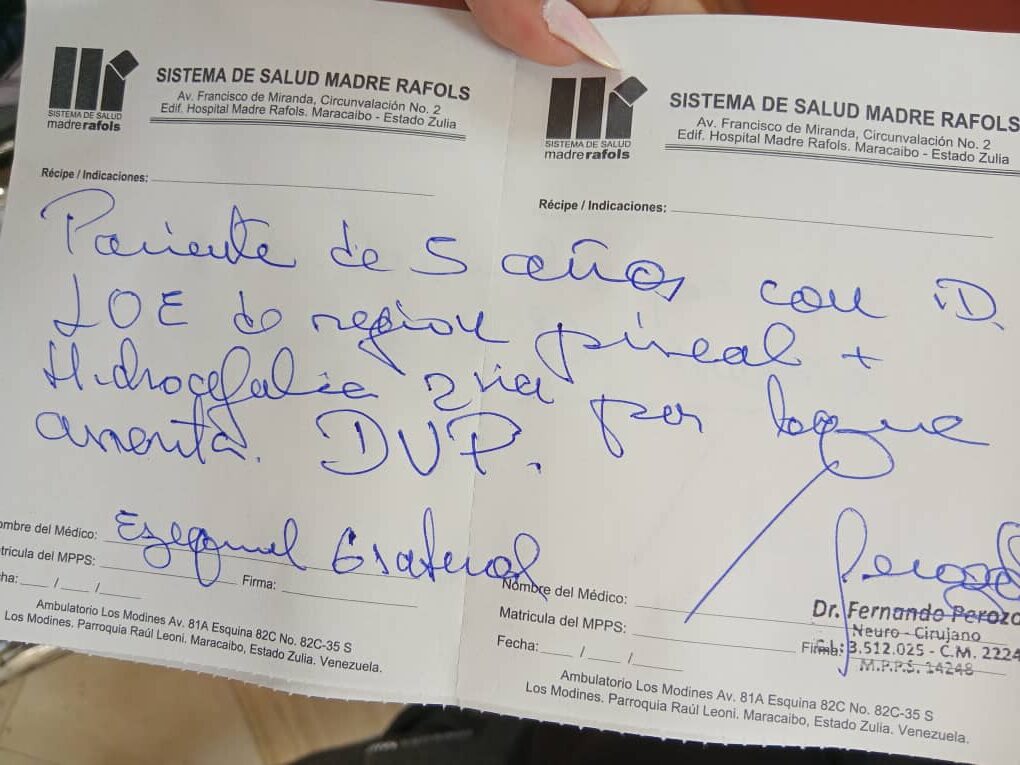 SISTEMA DE SALUD
madrerafols
SISTEMA DE SALUD MADRE RAFOLS
Av. Francisco de Miranda, Circunvalación No. 2
Edif. Hospital Madre Rafols. Maracaibo - Estado Zulia
SISTEMA DE SALUD
madrerafols
SISTEMA DE SALUD MADRE RAFOLS
Av. Francisco de Miranda, Circunvalación No. 2
Edif. Hospital Madre Rafols. Maracaibo - Estado Zulia
Récipe / Indicaciones:
Récipe / Indicaciones:
Paciente de 5 años con iD.
LOE de region pineal +
Hidrocefalia 2ria por lo que
amerita. DVP.
ombre del Médico: Ezequiel
trícula del MPPS:
cha: / / Firma:
Ambulatorio Los Modines Av. 81A Esquina 82C No. 82C-35 S
Los Modines. Parroquia Raúl Leoni. Maracaibo, Estado Zulia. Venezuela.
Nombre del Médico:
Matricula del MPPS:
Fecha: / / Firma:
Dr. Fernando Perozo
Neuro - Cirujano
C.I.: 3.512.025 - C.M. 2224
M.P.P.S. 14248
Ambulatorio Los Modines Av. 81A Esquina 82C No. 82C-35 S
Los Modines. Parroquia Raúl Leoni. Maracaibo, Estado Zulia. Venezuela.